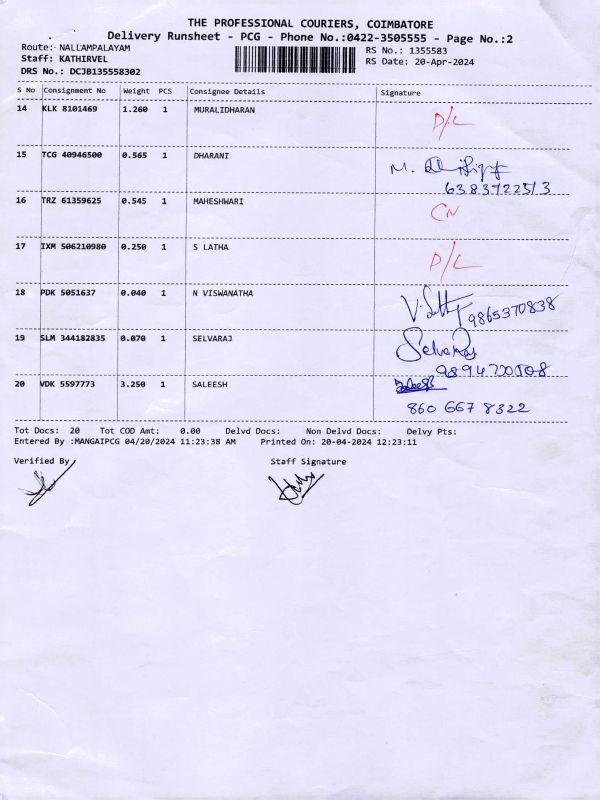 THE PROFESSIONAL COURIERS, COIMBATORE
Delivery Runsheet - PCG - Phone No.:0422-3505555 - Page No.:2
Route: NALLAMPALAYAM
RS No.: 1355583
Staff: KATHIRVEL
RS Date: 20-Apr-2024
DRS No.: DCJB135558302
S No Consignment No Weight PCS Consignee Details Signature
14 KLK 8101469 1.260 1 MURALIDHARAN D/L
15 TCG 40946500 0.565 1 DHARANI M.
6383722513
16 TRZ 61359625 0.545 1 MAHESHWARI CN
17 IXM 506210980 0.250 1 S LATHA D/L
18 PDK 5051637 0.040 1 N VISWANATHA
9865370838
19 SLM 344182835 0.070 1 SELVARAJ Selvaraj
20 VDK 5597773 3.250 1 SALEESH
860 667 8322
Tot Docs: 20 Tot COD Amt: 0.00 Delvd Docs: Non Delvd Docs: Delvy Pts:
Entered By :MANGAIPCG 04/20/2024 11:23:38 AM Printed On: 20-04-2024 12:23:11
Verified By Staff Signature